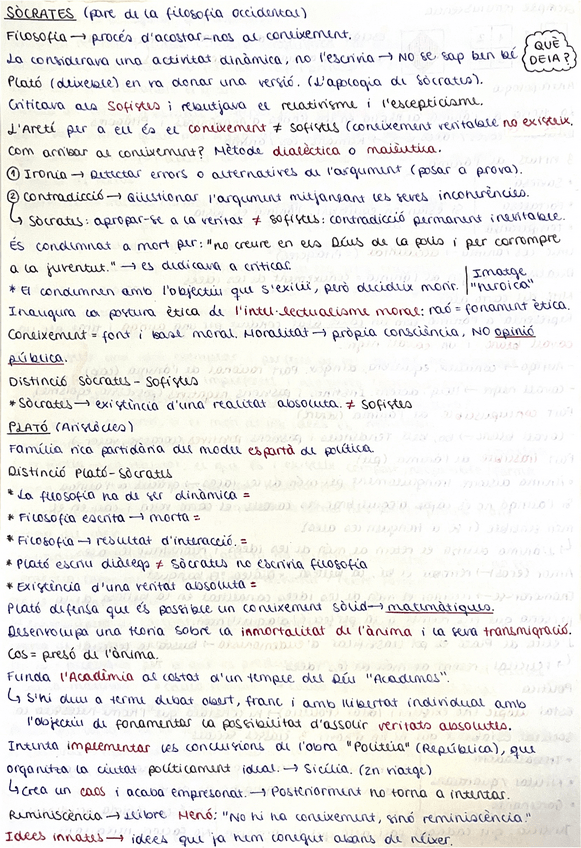 SÒCRATES (pare de la filosofia occidental)
Filosofia → procés d'acostar-nos al coneixement.
La considerava una activitat dinàmica, no l'escrivia → No se sap ben bé QUÈ DEIA?
Plató (deixeble) en va donar una versió. (L'apologia de Sòcrates).
Criticava als Sofistes i rebutjava el relativisme i l'escepticisme.
L'Aretí per a ell és el coneixement ≠ sofistes (coneixement veritable no existeix.
Com arribar al coneixement? Mètode dialèctica o maièutica.
① Ironia → Detectar errors o alternatives de l'argument (posar a prova).
② Contradicció → Qüestionar l'argument mitjansant les seves incoherències.
↳ Sòcrates: apropar-se a la veritat ≠ sofistes: contradicció permanent inevitable.
És condemnat a mort per: "no creure en els Déus de la polis i per corrompre
a la juventut." → es dedicava a criticar.
* El condemnen amb l'objectiu que s'exiliï, però decideix morir. | Imatge "heroica"
Inaugura la postura ètica de l'intel·lectualisme moral: raó = fonament ètica.
Coneixement = font i base moral. Moralitat → pròpia consciència. NO opinió
pública.
Distinció Sòcrates - Sofistes
* Sòcrates → existència d'una realitat absoluta. ≠ Sofistes
PLATÓ (Aristòcles)
Família rica partidària del model espartà de política.
Distinció Plató-Sòcrates
* La filosofia ha de ser dinàmica =
* Filosofia escrita → morta =
* Filosofia → resultat d'interacció. =
* Plató escriu diàlegs ≠ Sòcrates no escrivia filosofia
* Existència d'una veritat absoluta =
Plató defensa que és possible un coneixement sòlid → matemàtiques.
Desenvolupa una teoria sobre la inmortalitat de l'ànima i la seva transmigració.
Cos = presó de l'ànima.
Funda l'Acadèmia al costat d'un temple del Déu "Academos".
↳ S'hi duu a terme debat obert, franc i amb llibertat individual amb
l'objectiu de fonamentar la possibilitat d'assolir veritats absolutes.
Intenta implementar les conclusions de l'obra "Politeia" (República), que
organitza la ciutat políticament ideal. → Sicília. (2n viatge)
↳ Crea un caos i acaba empresonat. → Posteriorment no torna a intentar.
Reminiscència → Llibre Menó: "No hi ha coneixement, sinó reminiscència."
Idees innates → idees que ja hem conegut abans de néixer.